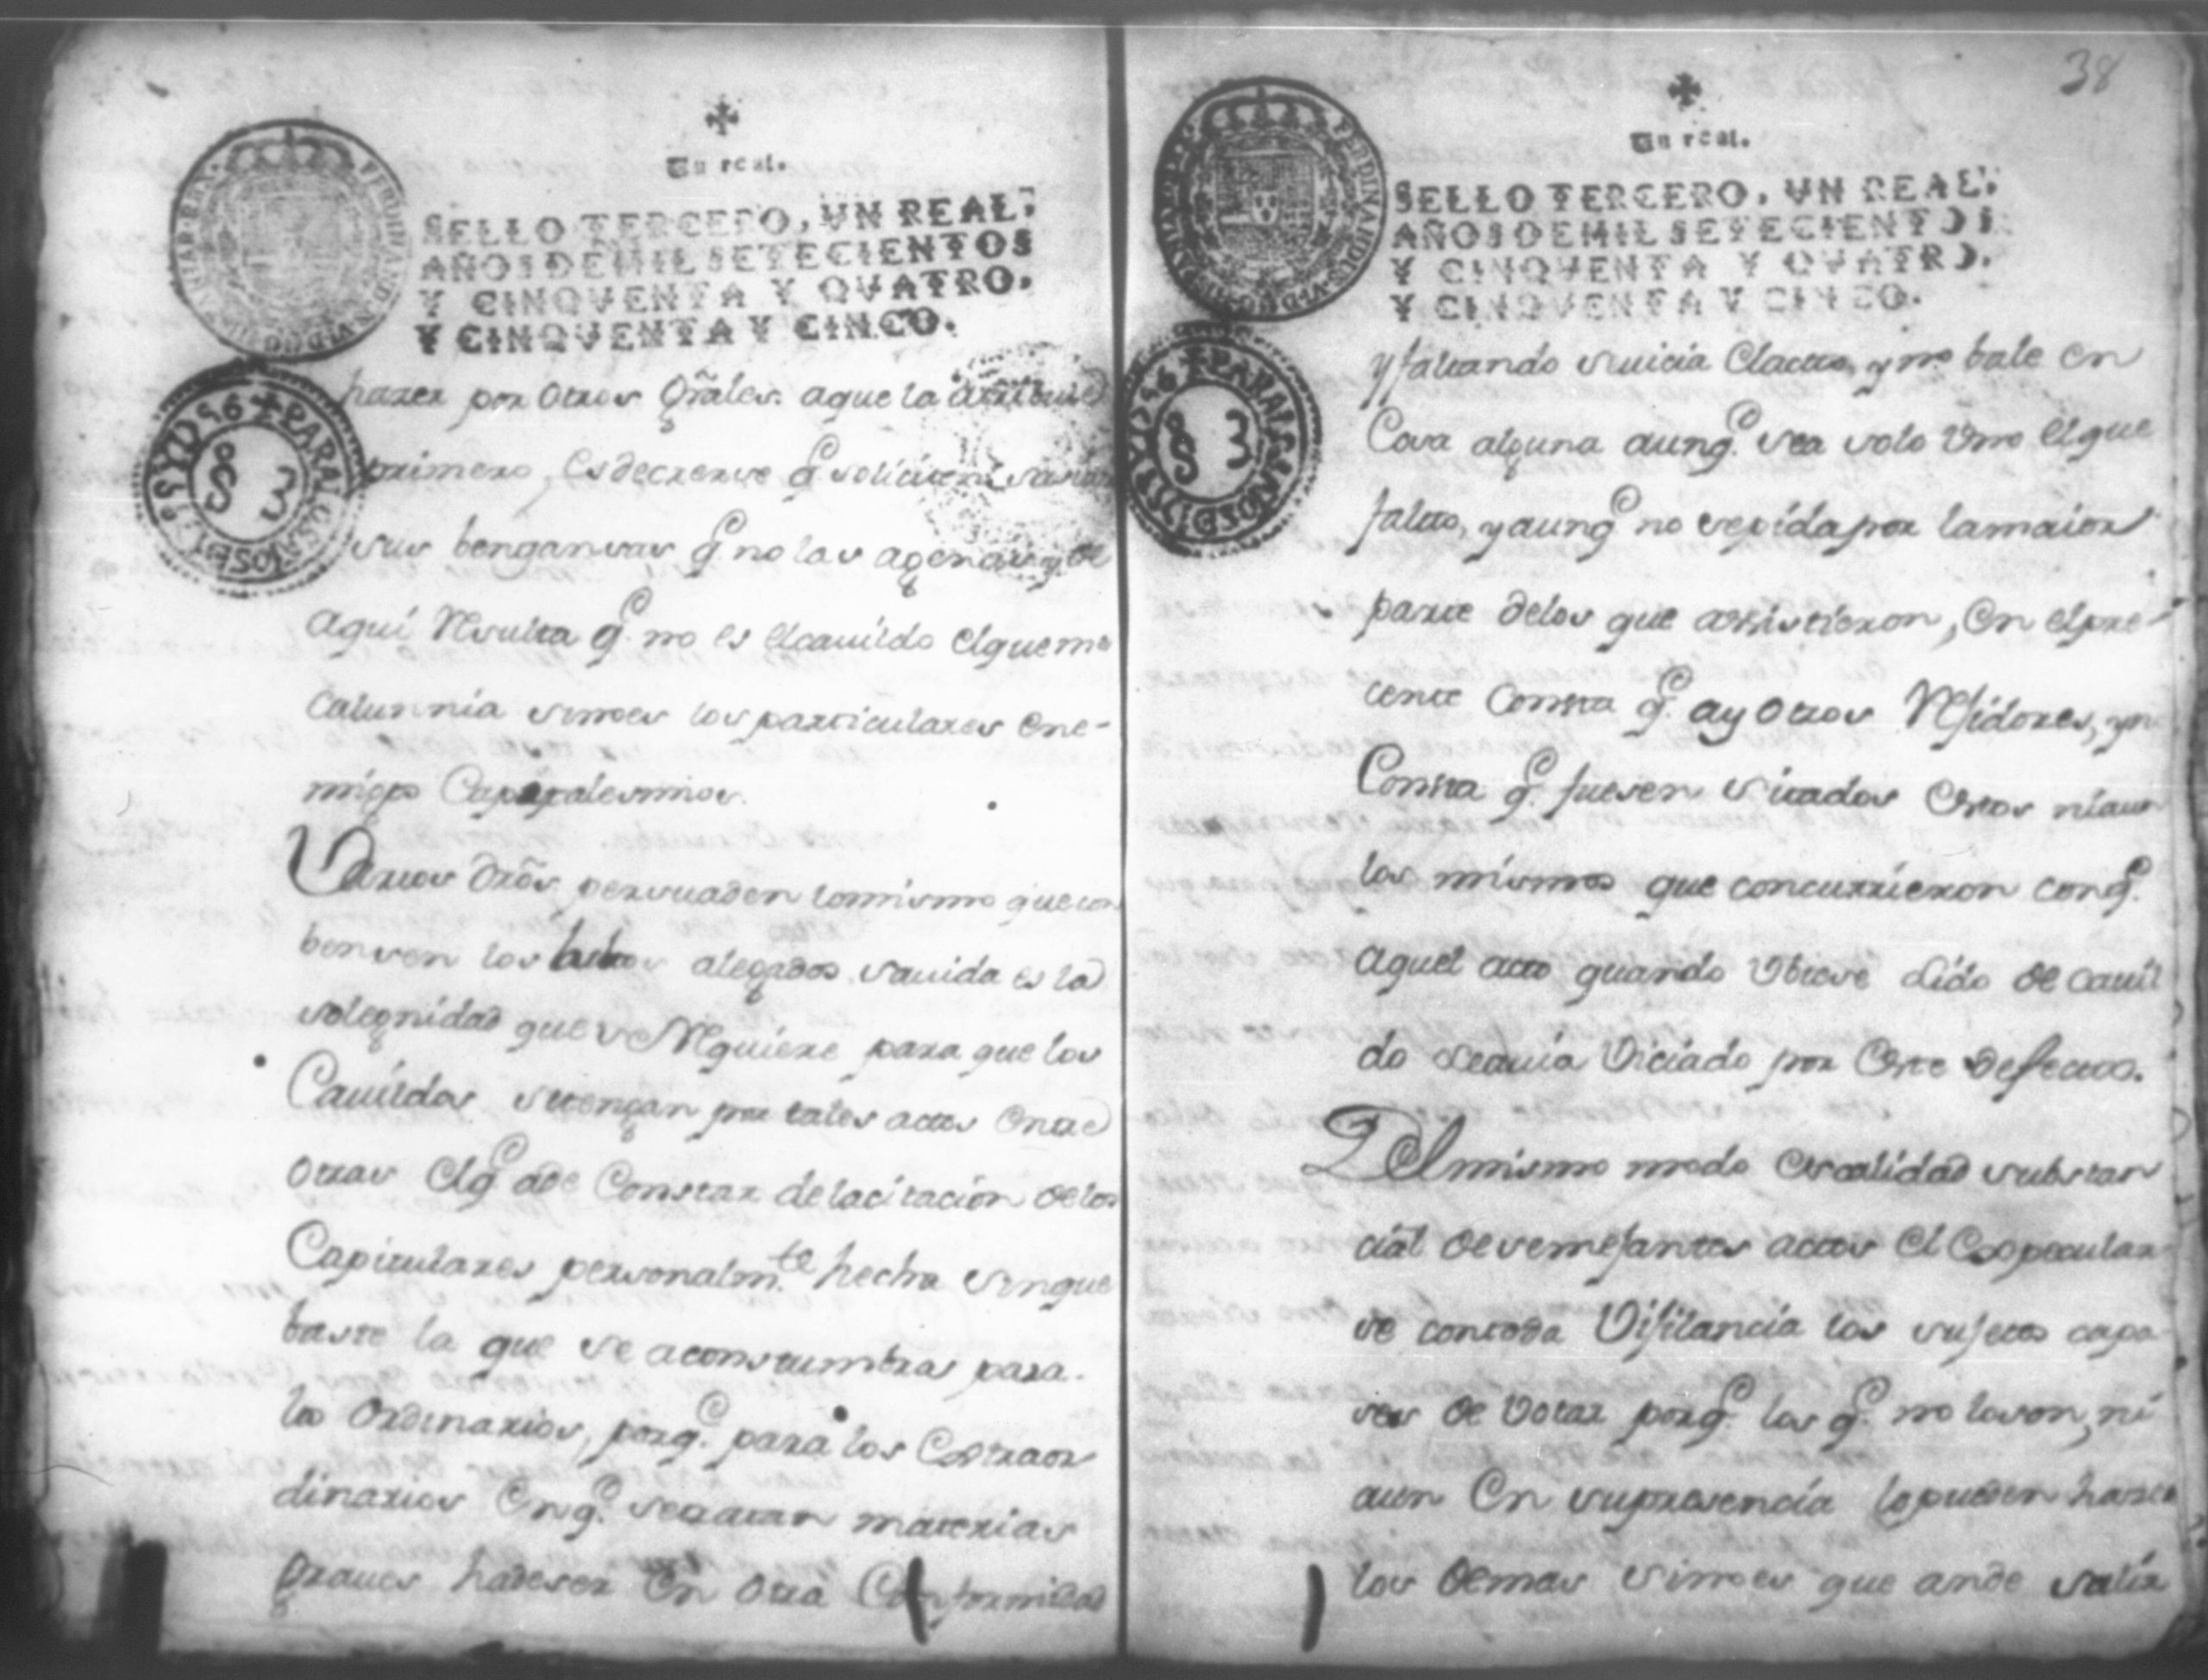 ✠
Un real.
SELLO TERCERO, VN REAL,
AÑOS DE MIL SETECIENTOS
Y CINQVENTA Y QVATRO,
Y CINQVENTA Y CINCO.
FERDINANDUS VI D G
PARA LOS AÑOS DE 1755 Y 1756
S 3
hazer por otros Grãles. aque la
primero, es de creerse q.e soliciten
sus benganzas q.e no las agenas y de
aqui Resulta q.e no es el cavildo el que me
calunnia sinoes los particulares ene-
migos Capitales mios.
Varios drõs persuaden lo mismo que con
bensen los hechos alegados savida es la
solegnidad que se Requiere para que los
Cavildos se tengan por tales actos entre
otras el q.e ade Constar de la citacion de los
Capitulares personalm.te hecha sin que
baste la que se aconstumbra para
los ordinarios, porq.e para los Extraor
dinarios en q.e se tratan materias
graves ha de ser en otra Conformidad
38
✠
Un real.
SELLO TERCERO, VN REAL,
AÑOS DE MIL SETECIENTOS
Y CINQVENTA Y QVATRO,
Y CINQVENTA Y CINCO.
FERDINANDUS VI D G
PARA LOS AÑOS DE 1755 Y 1756
S 3
y faltando se vicia el acto, y no bale en
Cosa alguna aunq.e sea solo Uno el que
falto, y aunq.e no se pida por la maior
parte de los que assistieron, en el pre-
cente Consta q.e ay otros Rexidores, y n
Consta q.e fuesen sitados estos ni aun
los mismos que concurrieron conq.e
aquel acto quando Ubiese sido de cavil
do se avia Viciado por este defecto.
Del mismo modo es calidad substan
cial de semejantes actos el Expecular
se contoda Vigilancia los sujetos capa
ses de Votar porq.e los q.e no lo son, ni
aun en su presencia lo pueden hazer
los demas sinoes que ande salir